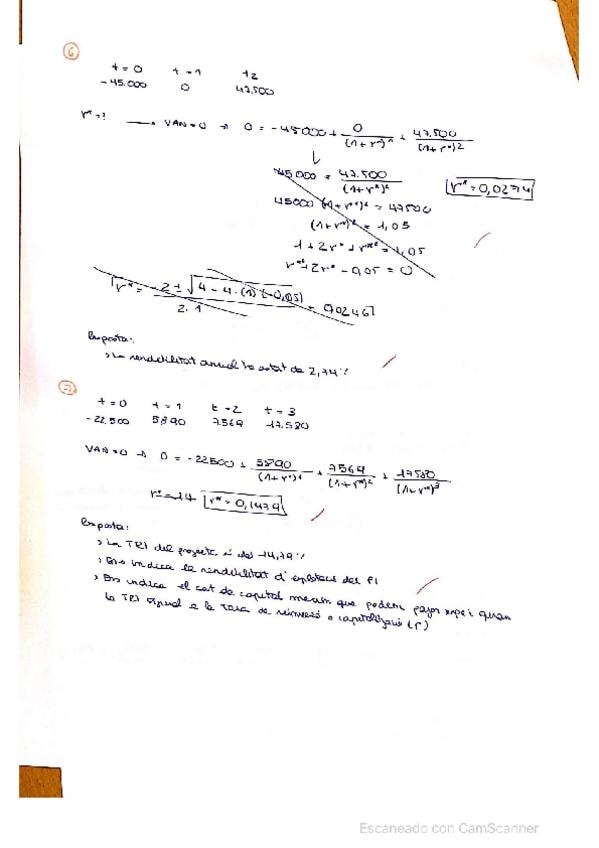 6
t=0 t=1 t2
-45.000 0 47.500
r*=? → VAN=0 → 0 = -45000 + 0/(1+r*)^1 + 47.500/(1+r*)^2
↓
45000 = 47.500/(1+r*)^2
r* = 0,0274
45000 (1+r*)^2 = 47500
(1+r*)^2 = 1,05
1+2r*+r*^2 = 1,05
r*^2+2r* - 0,05 = 0
r* = -2 ± √4-4·(1)(-0,05) / 2·1 = 0,02467
Resposta:
> La rendibilitat anual ha estat de 2,74%
7
t=0 t=1 t=2 t=3
-22.500 5.890 7.569 17.580
VAN=0 → 0 = -22500 + 5890/(1+r*)^1 + 7569/(1+r*)^2 + 17580/(1+r*)^3
r*=14 r* = 0,1479
Resposta:
> La TRI del projecte és del 14,79%
> Ens indica la rendibilitat d' del PI
> Ens indica el cost de capital màxim que podem pagar
la TRI a la Taxa de reinversió o capitalització (r)
Escaneado con CamScanner